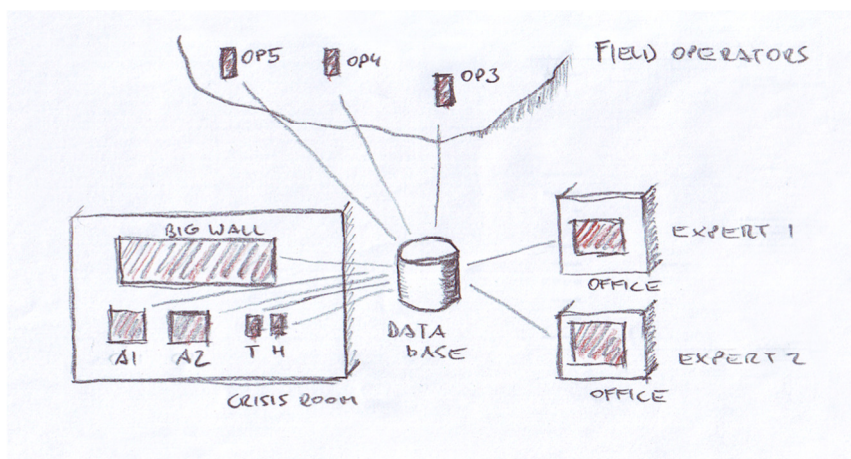 OP5
OP4
OP3
FIELD OPERATORS
BIG WALL
A1
A2
T
H
CRISIS ROOM
DATA
BASE
EXPERT 1
OFFICE
EXPERT 2
OFFICE